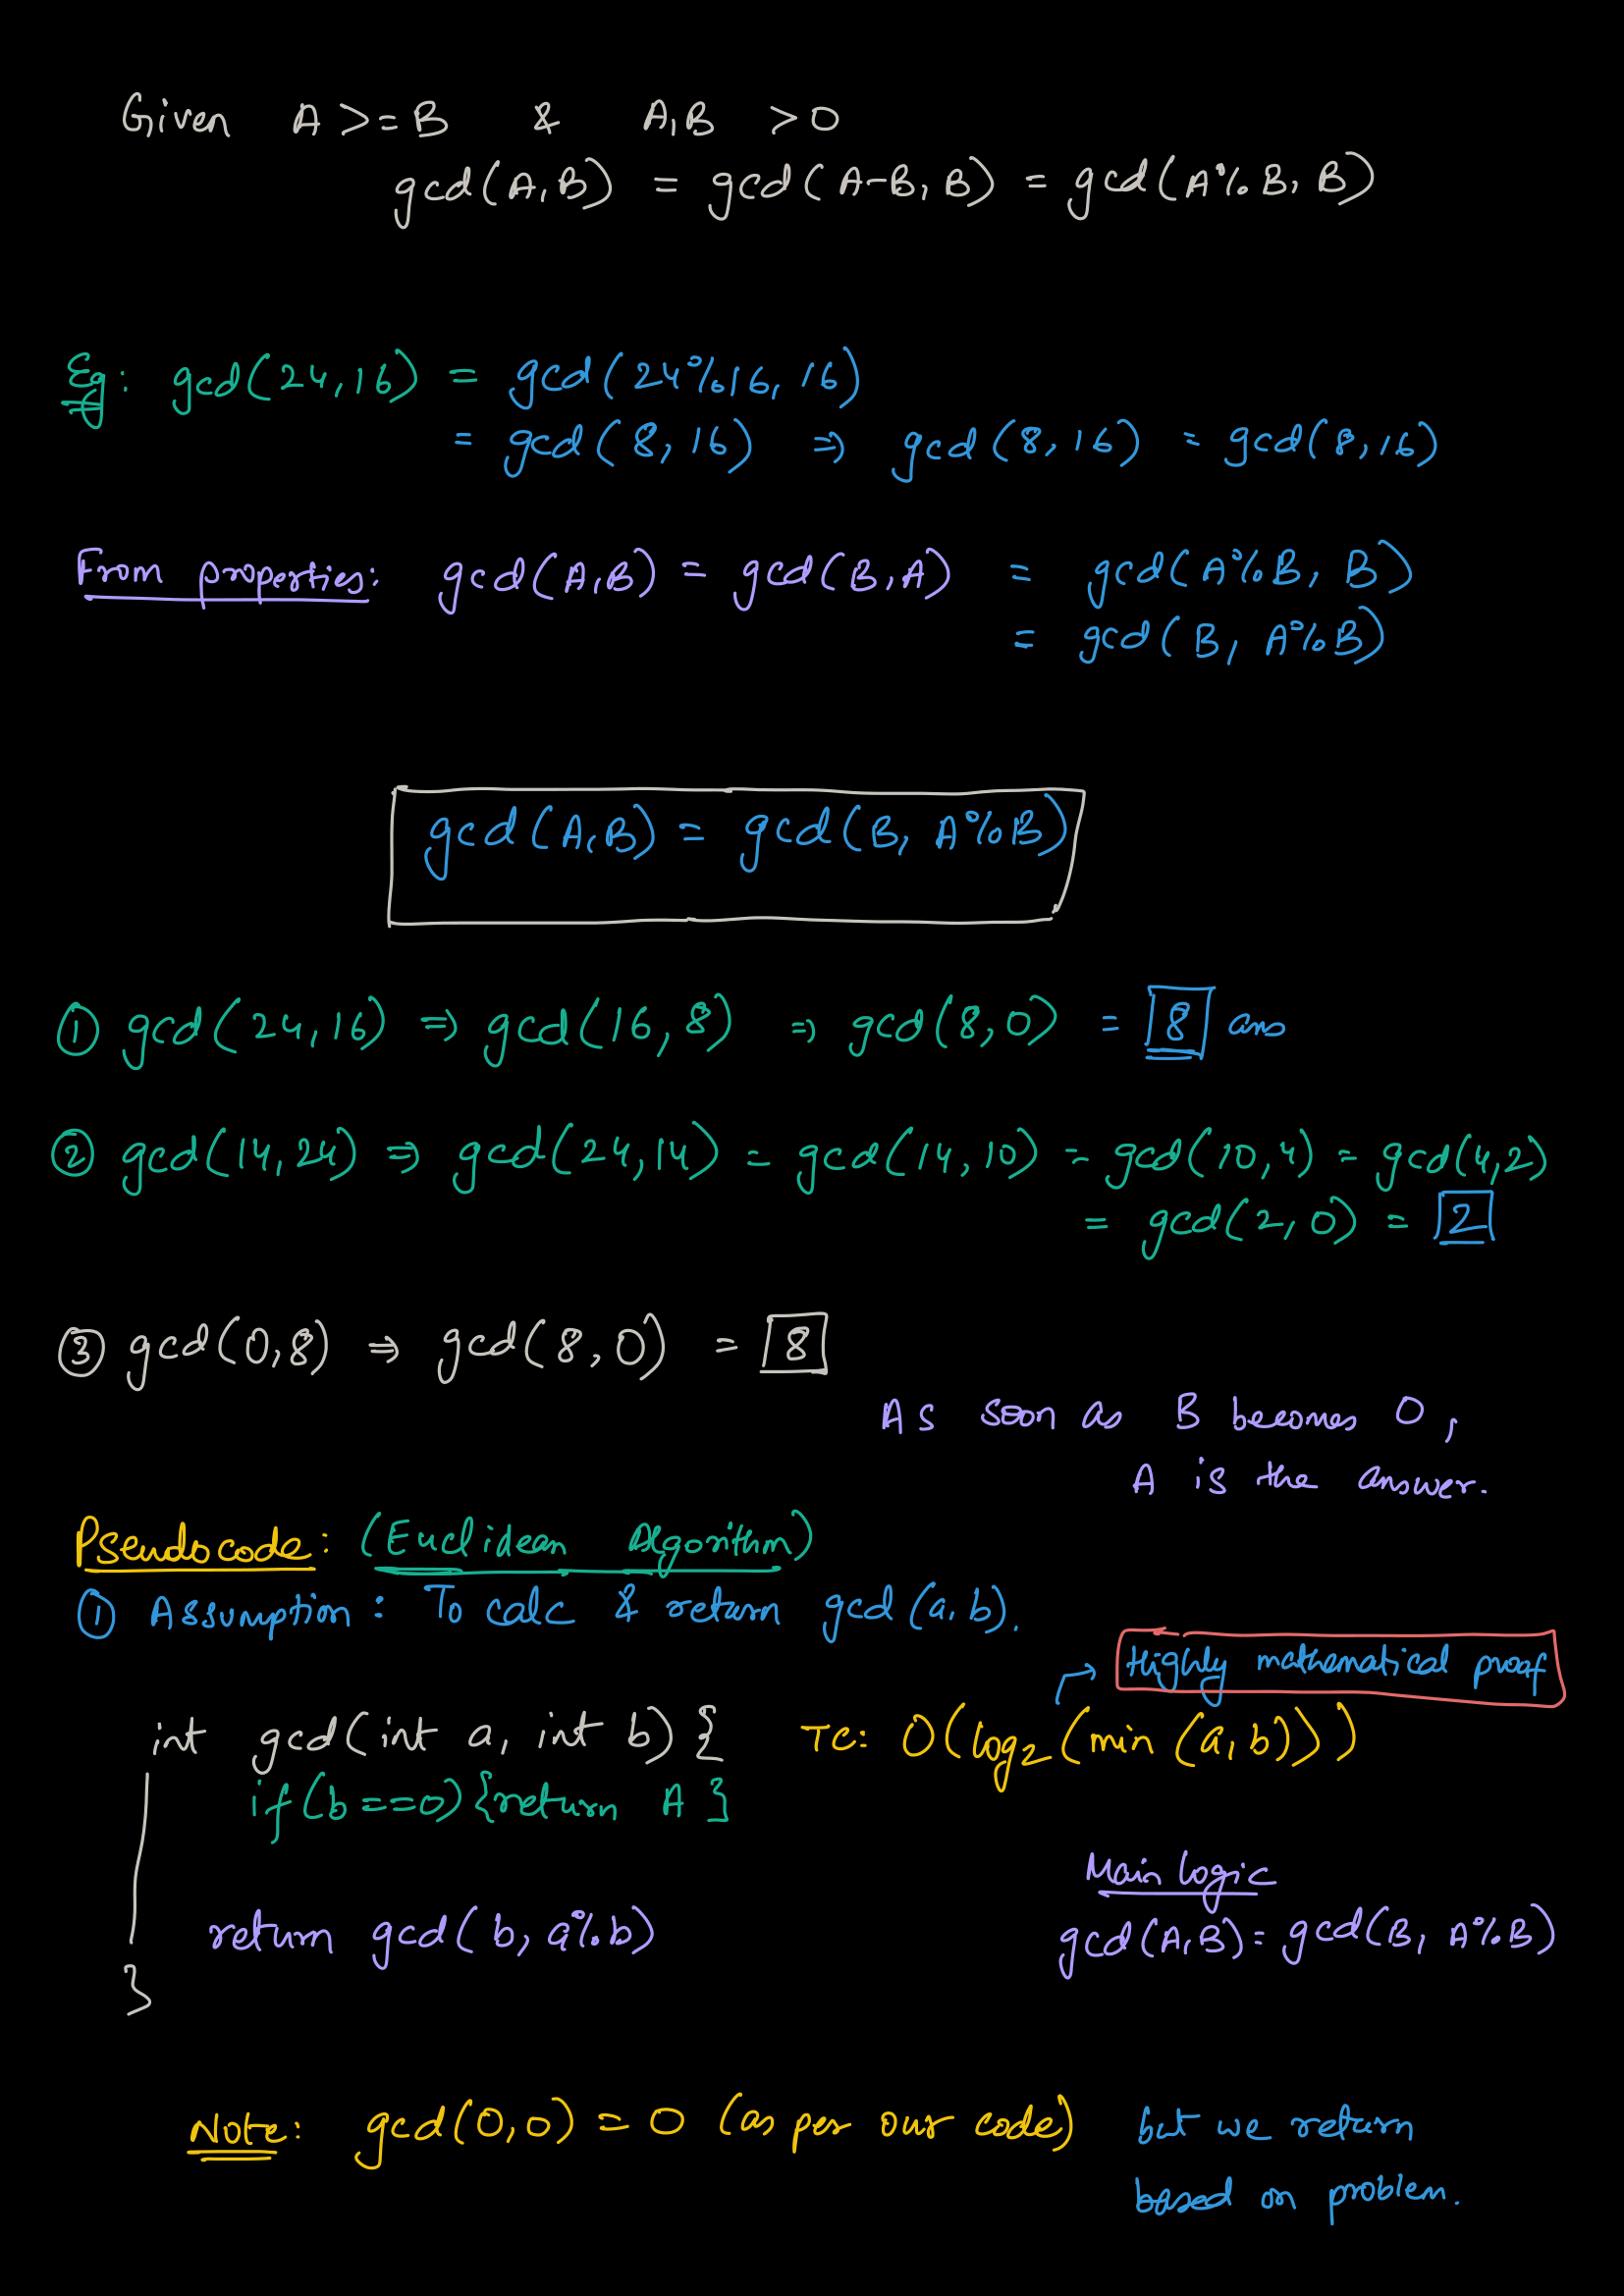 Given A >= B & A,B > 0
gcd(A,B) = gcd(A-B, B) = gcd(A%B, B)
Eg: gcd(24,16) = gcd(24%16, 16)
= gcd(8,16) ⇒ gcd(8,16) = gcd(8,16)
From properties: gcd(A,B) = gcd(B,A) = gcd(A%B, B)
= gcd(B, A%B)
gcd(A,B) = gcd(B, A%B)
① gcd(24,16) ⇒ gcd(16,8) ⇒ gcd(8,0) = 8 ans
② gcd(14,24) ⇒ gcd(24,14) = gcd(14,10) = gcd(10,4) = gcd(4,2)
= gcd(2,0) = 2
③ gcd(0,8) ⇒ gcd(8,0) = 8
As soon as B becomes 0,
A is the answer.
Pseudocode: (Euclidean Algorithm)
① Assumption: To calc & return gcd(a,b).
Highly mathematical proof
int gcd(int a, int b) { TC: O(log₂(min(a,b)))
if(b==0){return A}
Main logic
return gcd(b, a%b) gcd(A,B) = gcd(B, A%B)
}
Note: gcd(0,0) = 0 (as per our code) but we return
based on problem.